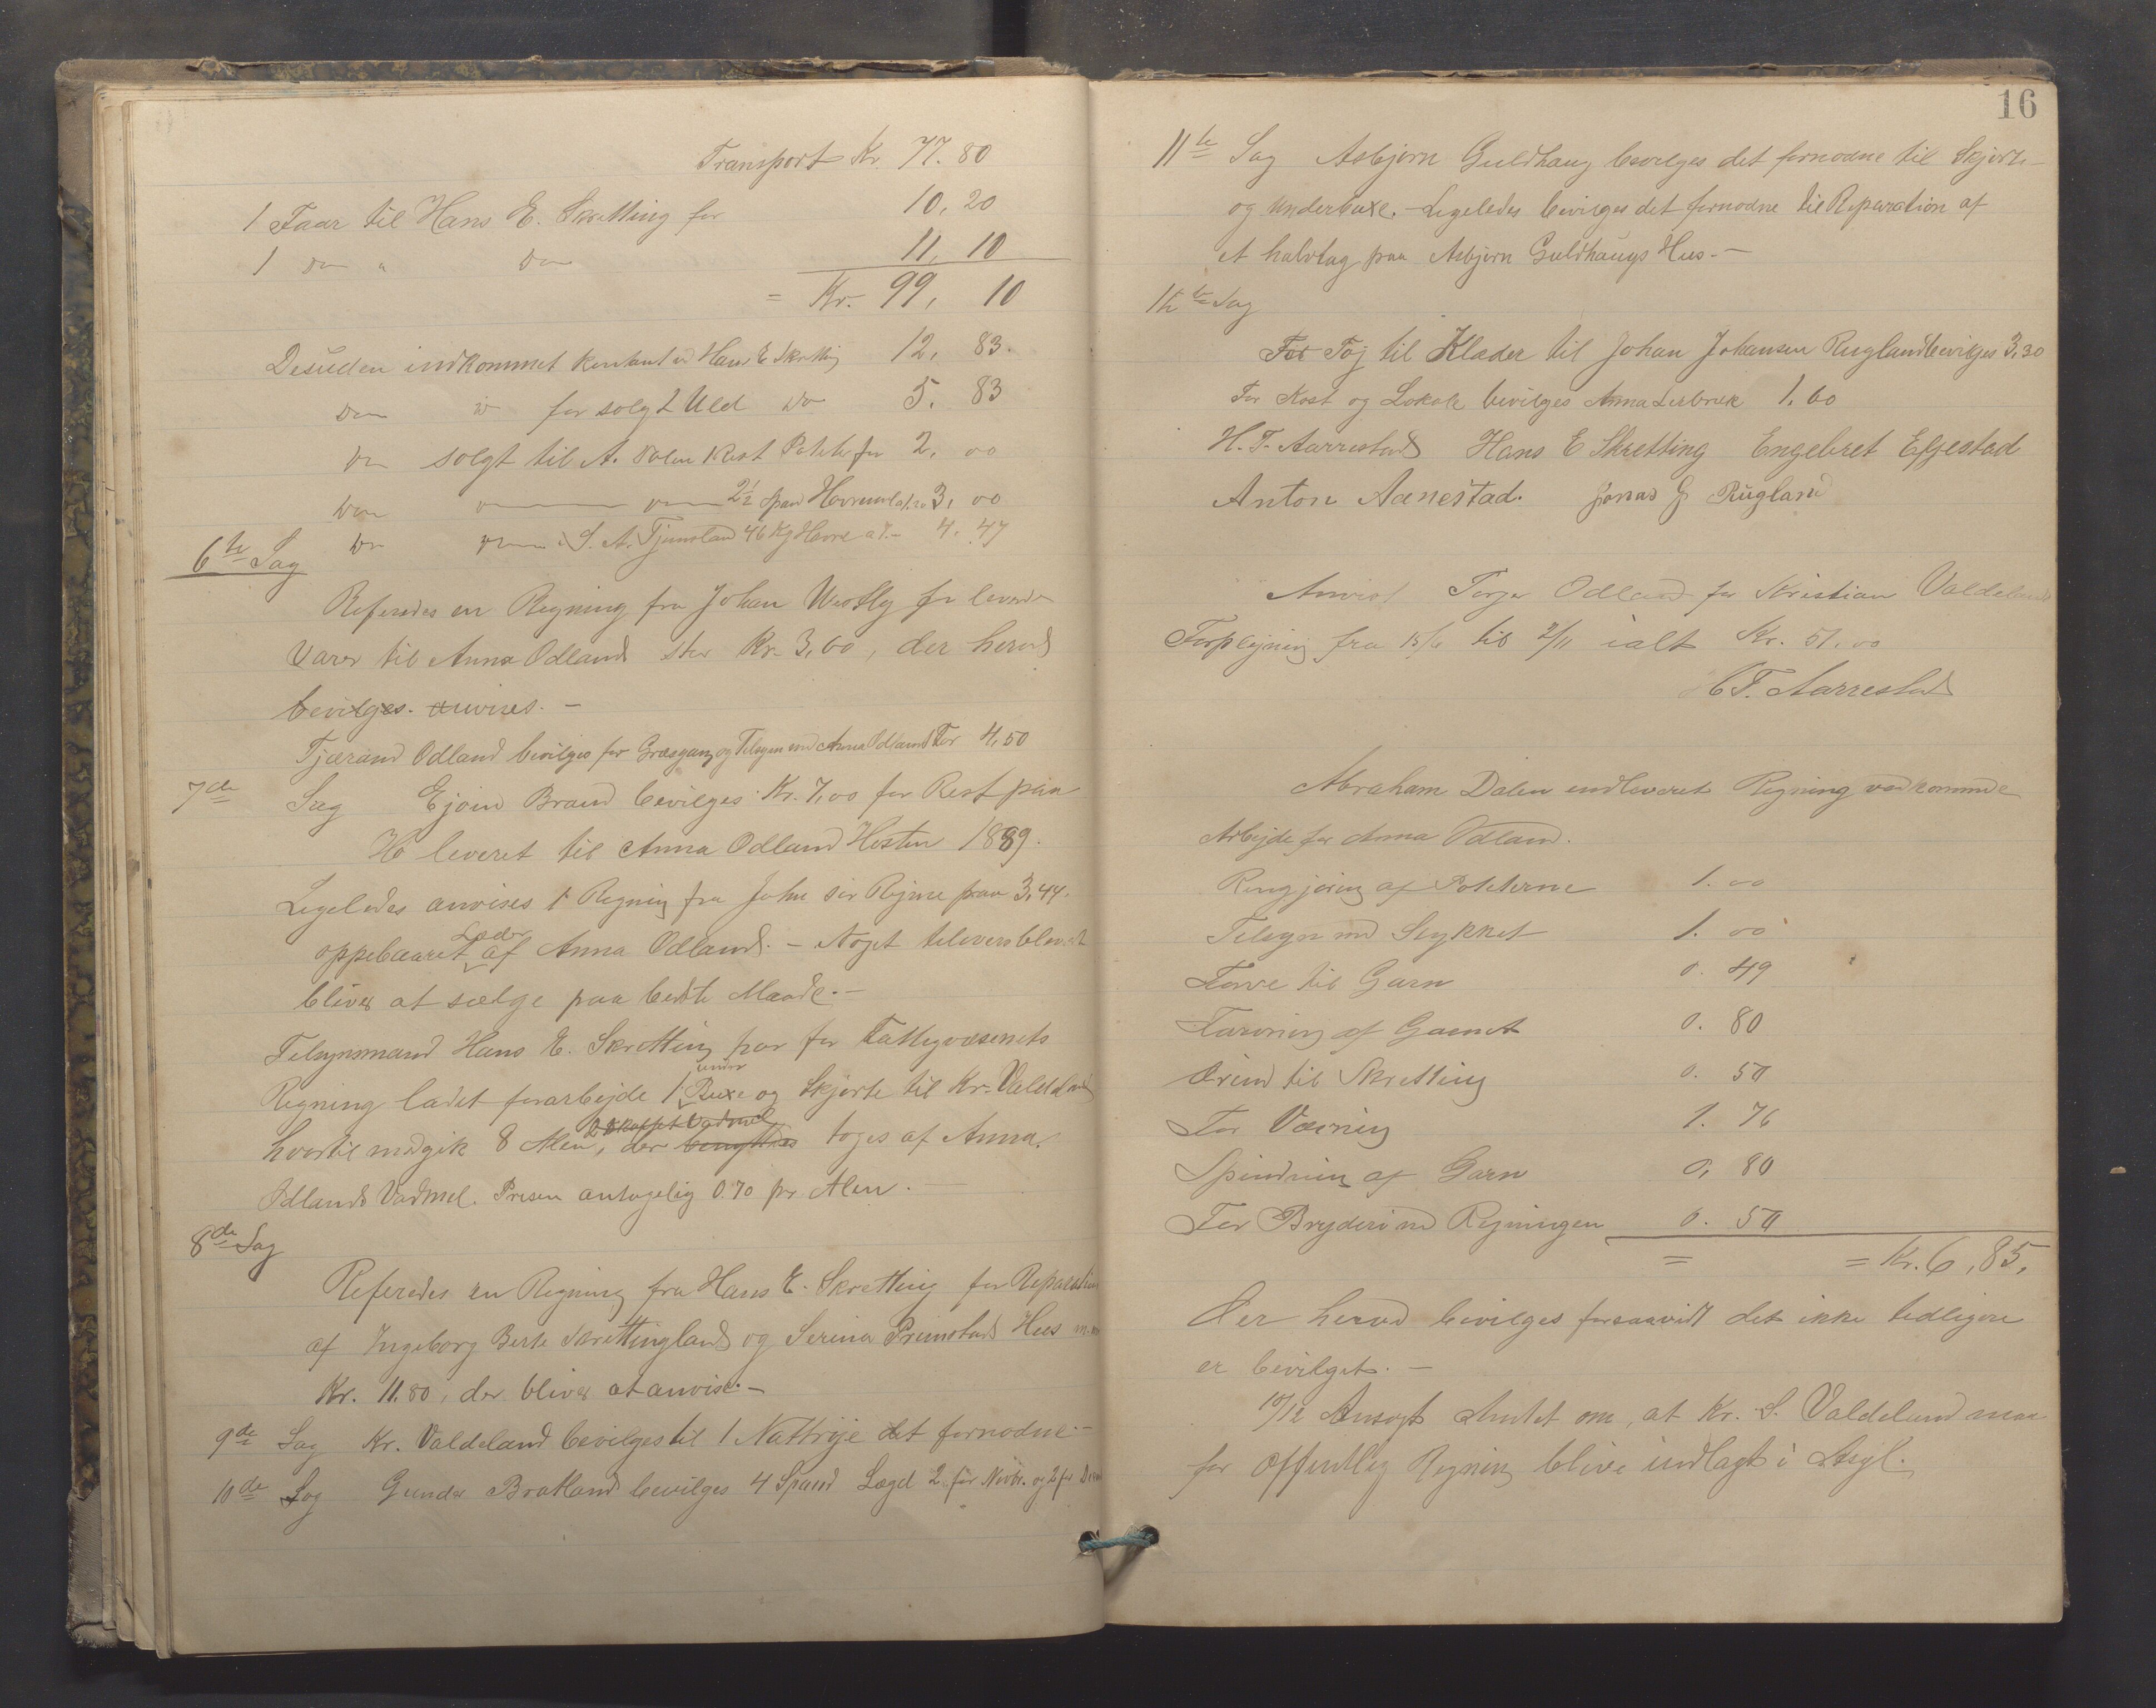 Transport Kr. 77.80
1 Faar til Hans E. Skretting for 10,20
1 Do " Do 11,10
= Kr. 99,10
Desuden indkommet kontant ved Hans E Skretting 12,83.
Do for solgt Uld Do 5.83
Do solgt til A. Dalen Rest Poteter for 2,00
Do 2½ spand 3,00
Do S. A. Tjemsland 46 Kg Havre 4.47
6te Sag
Refereredes en Regning fra Johan Vestly for leverede
Varer til Anna Odland stor Kr. 3,60, der herved
bevilges. anvises. -
Tjærand Odland bevilges for Græsgang og Tilsyn med Anna Odland Faar 4,50
7de Sag Ejvin Braud bevilges Kr. 7,00 for Rest paa
Hø leveret til Anna Odland Høsten 1889.
Legeledes anvises 1 Regning fra John paa 3,44.
oppebaaret Læder af Anna Odland. - Noget tiloversblevet
bliver at sælge paa bedste Maade. -
Tilsynsmand Hans E. Skretting har for Fattigvæsenets
Regning ladet forarbejde 1 under Buxe og Skjorte til Kr. Valdeland
hvortil medgik 8 Alen, der benyttedes toges af Anna
Odlands Vadmel. Prisen antagelig 0.70 pr Alen. -
8de Sag
Refereredes en Regning fra Hans E. Skretting for Reparation
af Ingeborg Berte Skrettingland og Serina Primstad Hus m.m
Kr. 11.80, der bliver at anvise. -
9de Sag Kr. Valdeland bevilges til 1 Nattrøje det fornødne. -
10de Sag Gunder Bratland bevilges 4 Spand Lægd 2 for Novbr. og 2 for
16
11te Sag Asbjørn Guldhaug bevilges det fornødne til Skjorte
og Underbuxe. - Legeledes bevilges det fornødne til Reparation af
et halvtag paa Asbjørn Guldhaugs Hus. -
12te Sag
For Tøj til Klæder til Johan Johansen Rugland bevilges 3,30
For Kost og Lokale bevilges Anna Lerbrek 1.60
H. T. Aarrestad Hans E Skretting Engebret Efjestad
Anton Aanestad. Jonas G Rugland
Anvist Torger Odland for Kristian Valdeland
Forplejning fra 15/6 til 2/11 ialt Kr. 51.00
H T. Aarrestad
Abraham Dalen indleveret Regning vedkommende
Arbejde for Anna Odland.
Rengjøring af Poteterne 1.00
Tilsyn med Stykket 1.00
Farve til Garn 0.49
Farvning af Garnet 0.80
Ærind til Skretting 0.50
For Vævning 1.76
Spinding af Garn 0,80
For Bryderi med Regningen 0.50
= = Kr. 6,85,
Der herved bevilges forsaavidt det ikke tidligere
er bevilget. -
10/12 Ansøgt Amtet om, at Kr. S. Valdeland maa
for offentlig Regning blive indlagt i Asyl.